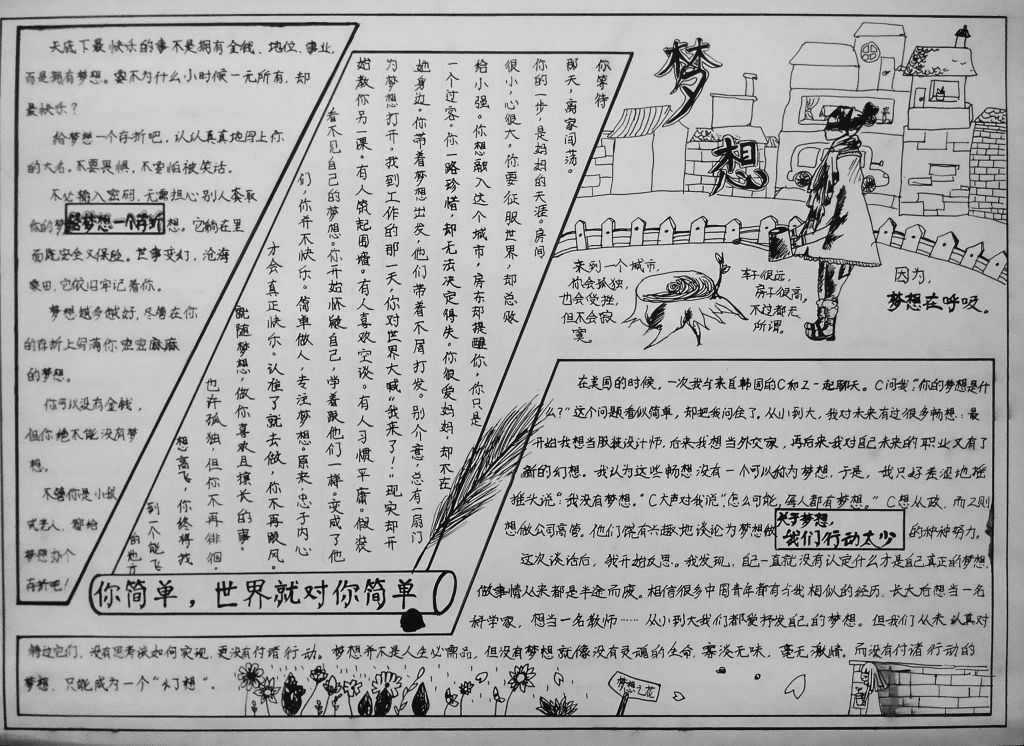 天底下最快乐的事不是拥有金钱、地位、事业,
而是拥有梦想。要不为什么小时候一无所有,却
最快乐?
给梦想一个存折吧,认认真真地写上你
的大名,不要畏惧,不害怕被笑话。
不必输入密码,无需担心别人套取
你的梦想。它躺在里
给梦想一个存折
面既安全又保险,世事变幻,沧海
桑田,它依旧牢记着你。
梦想越多越好,尽管在你
的存折上写满你密密麻麻
的梦想。
你可以没有金钱,
但你绝不能没有梦
想。
不管你是小孩
或老人,都给
梦想办个
存折吧!
你等待
那天,离家闯荡。
你的一步,是妈妈的天涯。房间
很小,心很大。你要征服世界,却总败
给小强。你想融入这个城市,房东却提醒你,你只是
一个过客。你一路珍惜,却无法决定得失。你很爱妈妈,却不在
她身边。你带着梦想出发,他们带着不屑打发。别介意,总有一扇门
为梦想打开。找到工作的那一天,你对世界大喊“我来了!”现实却开
始教你另一课。有人筑起围墙。有人喜欢空谈。有人习惯平庸。假装
看不见自己的梦想。你开始怀疑自己,学着跟他们一样。变成了他
们,你并不快乐。简单做人,专注梦想。原来忠于内心
才会真正快乐。认准了就去做,你不再跟风。
跟随梦想,做你喜欢且擅长的事。
也许孤独,但你不再徘徊。
想高飞,你终将找
到一个能飞
的地方
你简单,世界就对你简单
梦
想
来到一个城市,
你会孤独,
也会受挫,
但不会寂
寞。
车子很远,
房子很高。
不过都无
所谓。
因为,
梦想在呼吸。
在美国的时候,一次我与来自韩国的C和Z一起聊天。C问我:“你的梦想是什
么?”这个问题看似简单,却把我问住了。从小到大,我对未来有过很多畅想:最
开始我想当服装设计师,后来我想当外交家,再后来我对自己未来的职业又有了
新的幻想。我认为这些畅想没有一个可以称为梦想,于是,我只好羞涩地摇
摇头说:“我没有梦想。”C大声对我说:“怎么可能,每人都有梦想。”C想从政,而Z则
想做公司高管。他们饶有兴趣地谈论为梦想做的种种努力。
关于梦想,
我们行动太少
这次谈话后,我开始反思。我发现,自己一直就没有认定什么才是自己真正的梦想,
做事情从来都是半途而废。相信很多中国青年都有与我相似的经历,长大后想当一名
科学家,想当一名教师……从小到大我们都爱抒发自己的梦想。但我们从未认真对
待过它们,没有思考该如何实现,更没有付诸行动。梦想并不是人生必需品,但没有梦想就像没有灵魂的生命,寡淡无味,毫无激情。而没有付诸行动的
梦想,只能成为一个“幻想”。
梦想之花